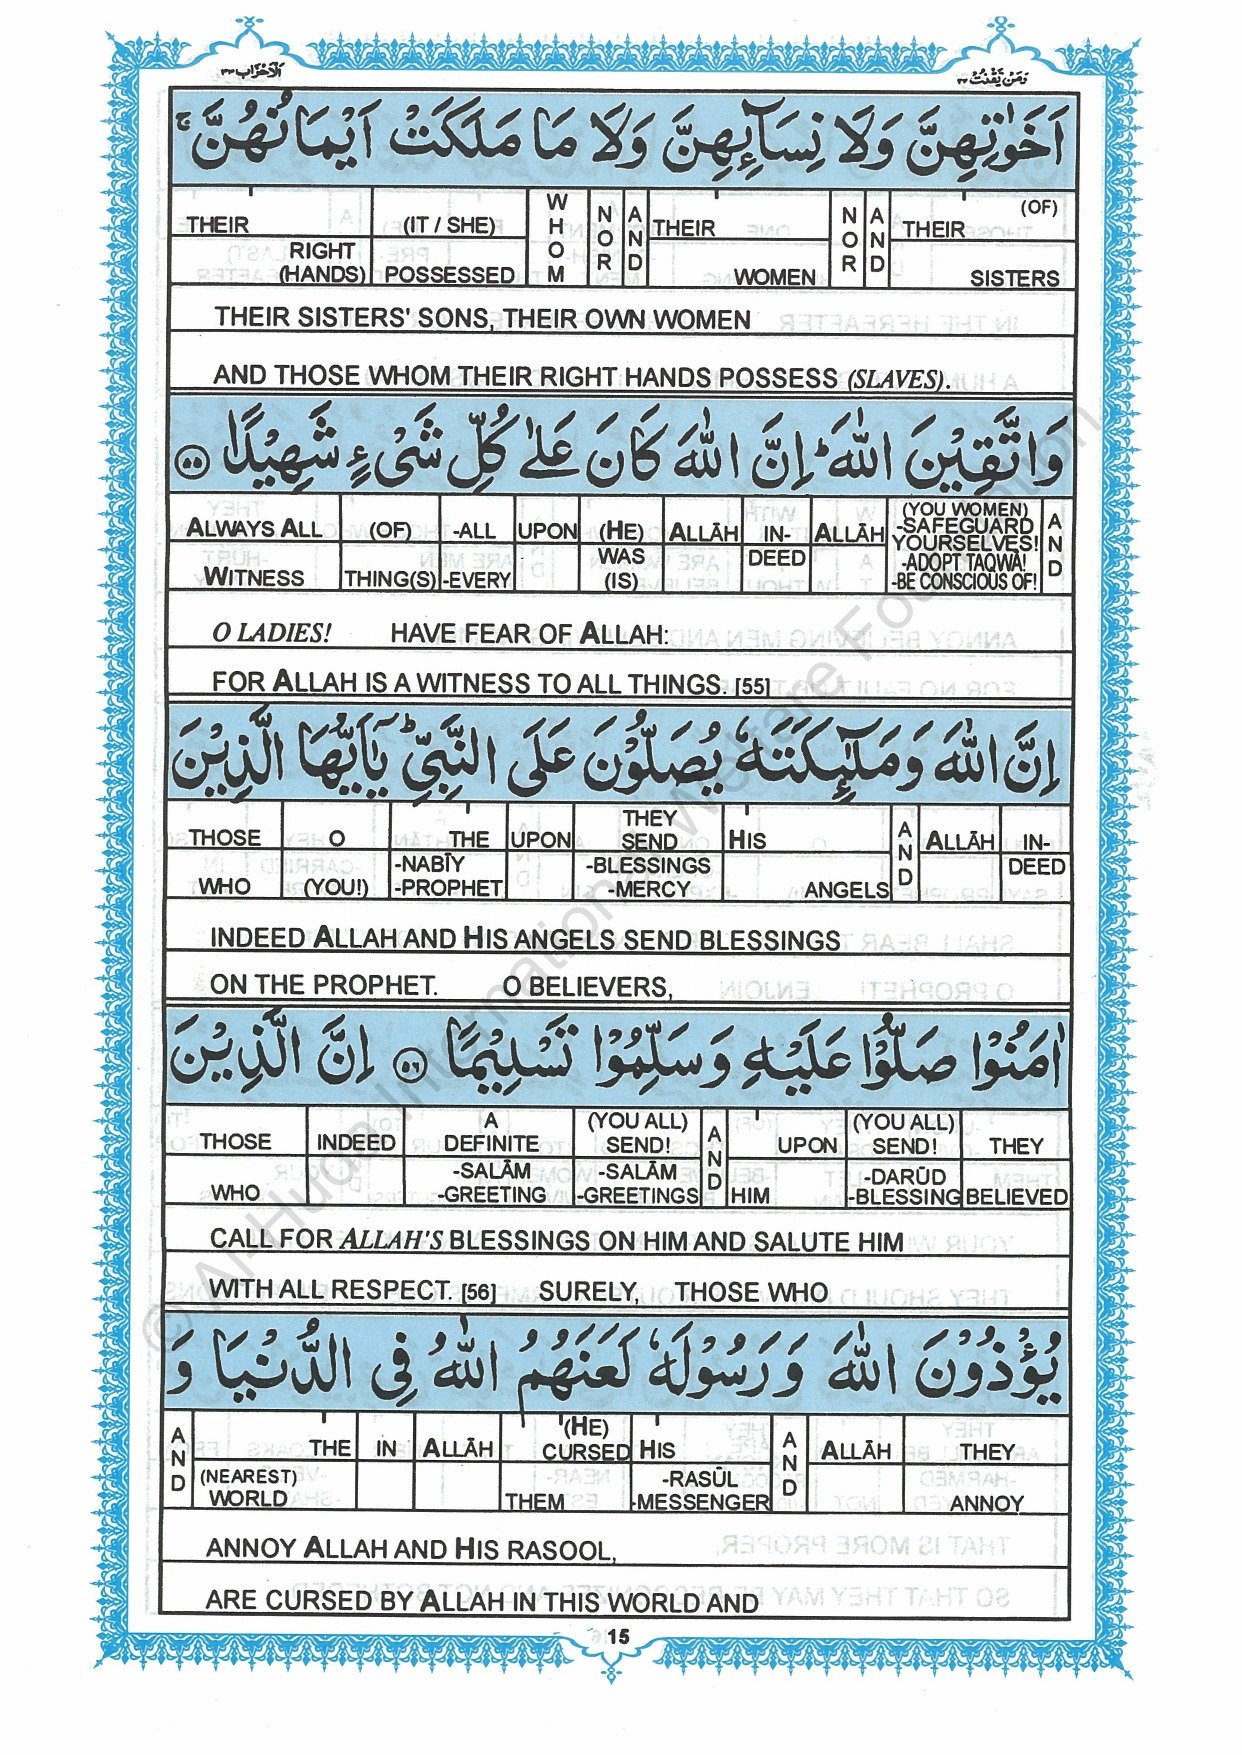 الاحزاب ٣٣
ومن يقنت ٢٢
اَخَوٰتِهِنَّ وَلَا نِسَآئِهِنَّ وَلَا مَا مَلَكَتْ اَيْمَانُهُنَّ ۚ
THEIR RIGHT (HANDS) (IT / SHE) POSSESSED WHOM NOR AND THEIR WOMEN NOR AND THEIR (OF) SISTERS
THEIR SISTERS' SONS, THEIR OWN WOMEN
AND THOSE WHOM THEIR RIGHT HANDS POSSESS (SLAVES).
وَاتَّقِيْنَ اللّٰهَ ؕ اِنَّ اللّٰهَ كَانَ عَلٰى كُلِّ شَىْءٍ شَهِيْدًا ۝۵۵
ALWAYS ALL WITNESS (OF) THING(S) -ALL -EVERY UPON (HE) WAS (IS) ALLĀH IN-DEED ALLĀH (YOU WOMEN) -SAFEGUARD YOURSELVES! -ADOPT TAQWA! -BE CONSCIOUS OF! AND
O LADIES! HAVE FEAR OF ALLAH:
FOR ALLAH IS A WITNESS TO ALL THINGS. [55]
اِنَّ اللّٰهَ وَمَلٰٓئِكَتَهٗ يُصَلُّوْنَ عَلَى النَّبِىِّ ؕ يٰۤاَيُّهَا الَّذِيْنَ
THOSE WHO O (YOU!) THE -NABĪY -PROPHET UPON THEY SEND -BLESSINGS -MERCY HIS ANGELS AND ALLĀH IN-DEED
INDEED ALLAH AND HIS ANGELS SEND BLESSINGS
ON THE PROPHET. O BELIEVERS,
اٰمَنُوْا صَلُّوْا عَلَيْهِ وَسَلِّمُوْا تَسْلِيْمًا ۝۵۶ اِنَّ الَّذِيْنَ
THOSE WHO INDEED A DEFINITE -SALĀM -GREETING (YOU ALL) SEND! -SALĀM -GREETINGS AND UPON HIM (YOU ALL) SEND! -DARŪD -BLESSING THEY BELIEVED
CALL FOR ALLAH'S BLESSINGS ON HIM AND SALUTE HIM
WITH ALL RESPECT. [56] SURELY, THOSE WHO
يُؤْذُوْنَ اللّٰهَ وَرَسُوْلَهٗ لَعَنَهُمُ اللّٰهُ فِى الدُّنْيَا وَ
AND THE (NEAREST) WORLD IN ALLĀH (HE) CURSED THEM HIS -RASŪL -MESSENGER AND ALLĀH THEY ANNOY
ANNOY ALLAH AND HIS RASOOL,
ARE CURSED BY ALLAH IN THIS WORLD AND
15
© Al-Huda International Welfare Foundation